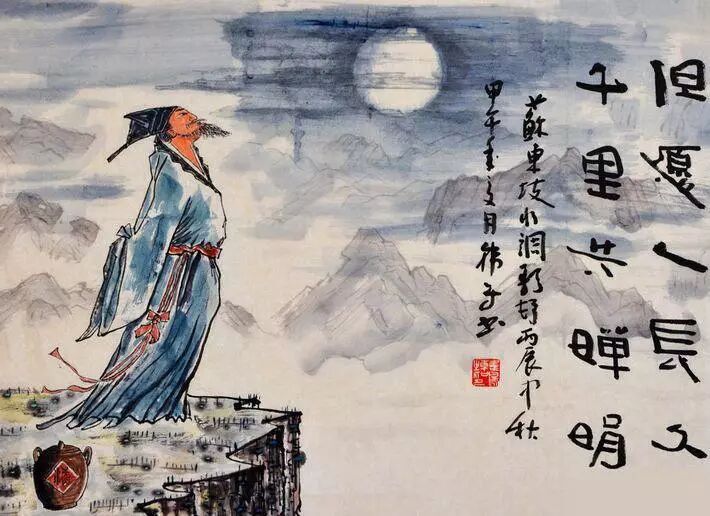 但愿人長久
千里共嬋娟
蘇東坡水調歌頭丙辰中秋
甲午 月 书